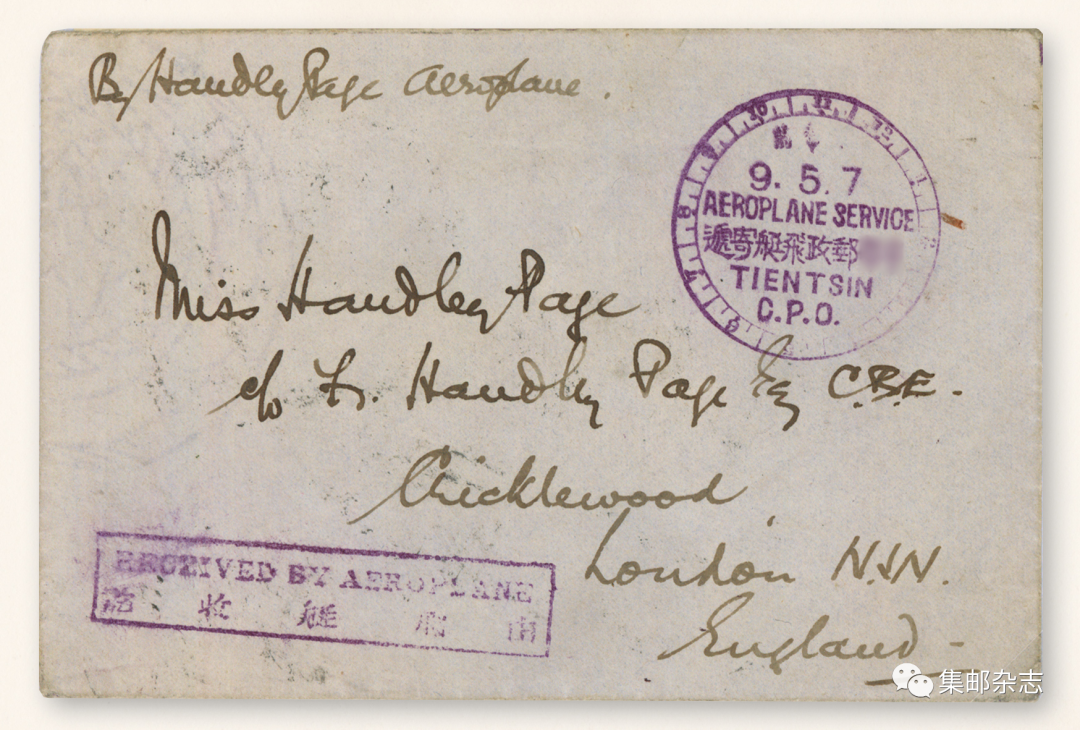 By Handley Page Aeroplane.
10 11 12
9. 5. 7
AEROPLANE SERVICE
遞寄艇飛政郵
TIENTSIN
C.P.O.
8
7
6
Miss Handley Page
c/o Fr. Handley Page Esq C.B.E.
Cricklewood
London N.W.
England
RECEIVED BY AEROPLANE
收 艇 飛 由
集邮杂志